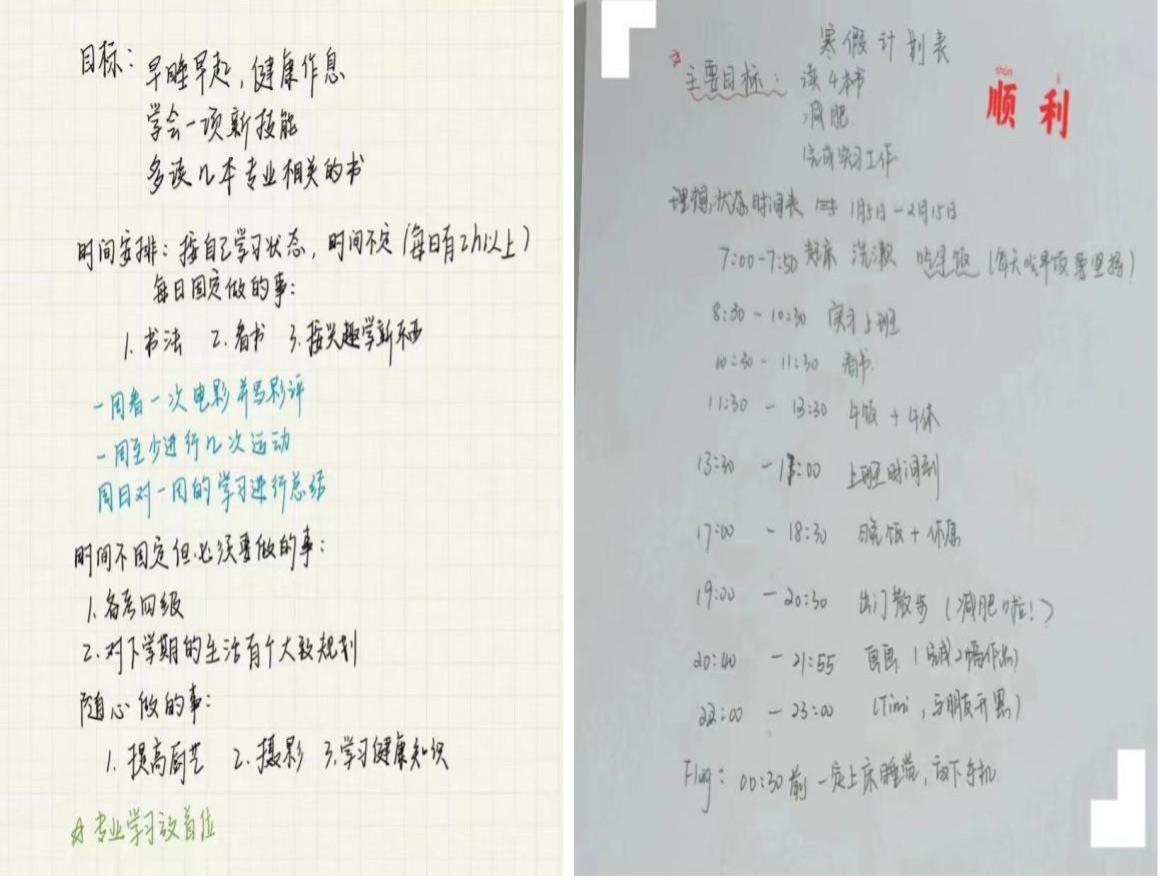 目标：早睡早起，健康作息
学会一项新技能
多读几本专业相关的书
时间安排：按自己学习状态，时间不定（每日有2h以上）
每日固定做的事：
1. 书法 2. 看书 3. 按兴趣学新东西
一周看一次电影并写影评
一周至少进行几次运动
周日对一周的学习进行总结
时间不固定但必须要做的事：
1. 备考四级
2. 对下学期的生活有个大致规划
随心做的事：
1. 提高厨艺 2. 摄影 3. 学习健康知识
☆专业学习放首位
寒假计划表
☆主要目标：读4本书
减肥
完成实习工作
shùn
顺利
理想状态时间表 1月5日－2月15日
7:00-7:50 起床 洗漱 吃早饭（每天吃早饭要坚持）
8:30－10:30 实习上班
10:30－11:30 看书
11:30－13:30 午饭＋午休
13:30－17:00 上班时间到
17:00－18:30 晚饭＋休息
19:00－20:30 出门散步（减肥啦！）
20:40－21:55 画画（完成2幅作品）
22:00－23:00（Timi，与朋友开黑）
Flag：00:30前一定上床睡觉，放下手机